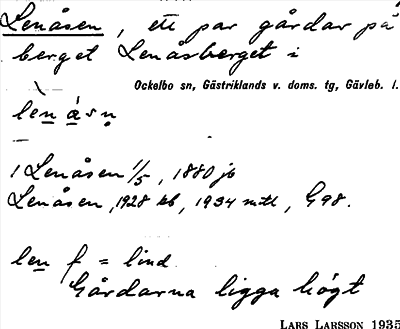 Lenåsen, ett par gårdar på
berget Lenåsberget i
Ockelbo sn, Gästriklands v. doms. tg, Gävleb. l.
lenåsn
1 Lenåsen 1/5, 1880 jb
Lenåsen, 1928 kb, 1934 mtl, G98.
len f = lind
Gårdarna ligga högt
LARS LARSSON 1935